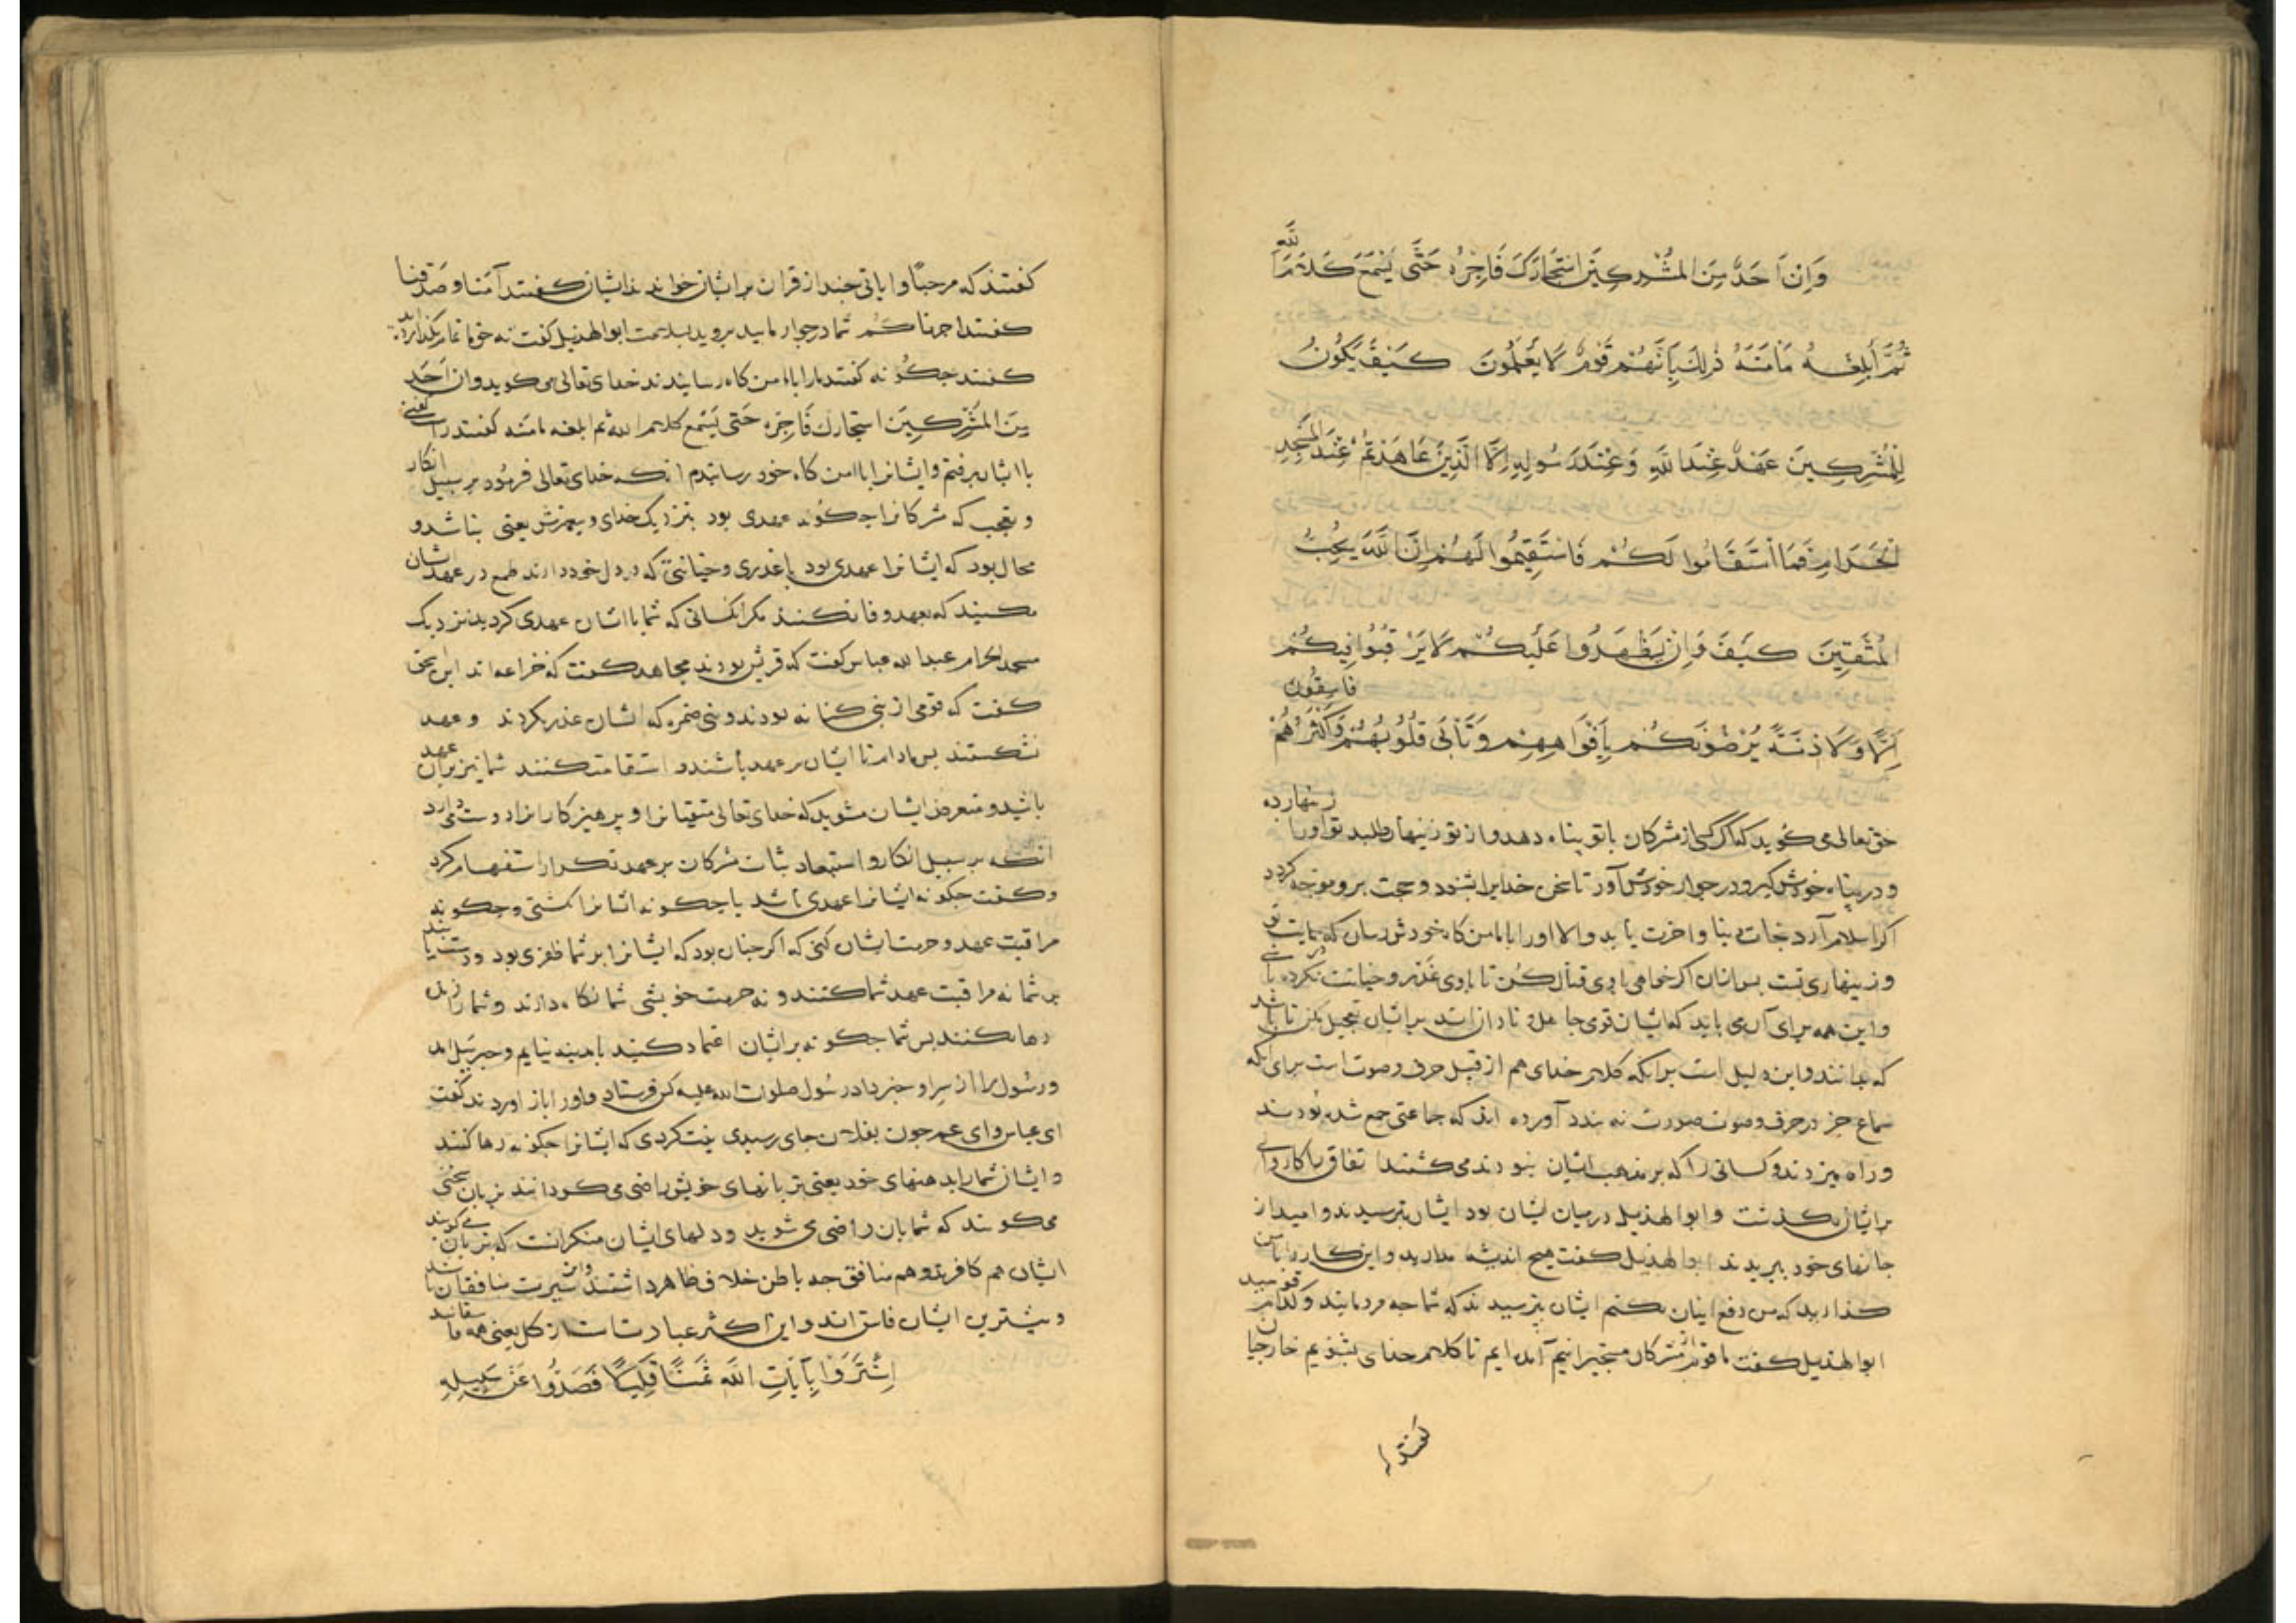 وَاِنْ اَحَدٌ مِنَ المُشْرِكِينَ اسْتَجَارَكَ فَاَجِرْهُ حَتَّى يَسْمَعَ كَلَامَ اللَّهِ
ثُمَّ أَبْلِغْهُ مَأمَنَهُ ذٰلِكَ بِاَنَّهُمْ قَوْمٌ لَا يَعْلَمُونَ كَيْفَ يَكُونُ
لِلْمُشْرِكِينَ عَهْدٌ عِنْدَ اللَّهِ وَعِنْدَ رَسُولِهِ اِلَّا الَّذِينَ عَاهَدْتُمْ عِنْدَ المَسْجِدِ
الْحَرَامِ فَمَا اسْتَقَامُوا لَكُمْ فَاسْتَقِيمُوا لَهُمْ اِنَّ اللَّهَ يُحِبُّ
المُتَّقِينَ كَيْفَ وَاِنْ يَظْهَرُوا عَلَيْكُمْ لَا يَرْقُبُوا فِيكُمْ
اِلًّا وَلَا ذِمَّةً يُرْضُونَكُمْ بِاَفْوَاهِهِمْ وَتَأبَى قُلُوبُهُمْ وَاَكْثَرُهُمْ فَاسِقُونَ
حق تعالی می کوید که اکر کسی از مشرکان باتو پناه دهد و از تو زینهار طلبد تو اورا زینهار ده
و در پناه خودش کیر و در جوار خودش آور تا سخن خدایرا بشنود و حجت برو متوجه کردد
اکر اسلام آرد نجات دنیا و اخرت یابد و الا اورا بامامن کاه خودش رسان که
و زینهاری تست بس ازان اکر خواهی باوی قتال کن تا باوی غدر و خیانت نکرده باشی
و این همه برای آن می باید که ایشان قوی جاهل و نادان اند بر ایشان تعجیل مکن تا باشد
که بدانند و این دلیل است برانکه کلام خدای هم از قبل حرف و صوت است برای انکه
سماع جز در حرف و صوت صورت نه بندد آورده اند که جماعتی جمع شده بودند
و راه میزدند و کسانی را که بر مذهب ایشان نبودند می کشتند اتفاق را کاروانی
بر ایشان بکذشت و ابوالهذیل در میان ایشان بود ایشان بترسیدند و امید از
جانهای خود ببریدند ابوالهذیل کفت هیچ اندیشه مدارید و این کار را با من
کذارید که من دفع اینان بکنم ایشان بترسیدند که شما چه مردمانید و کدام قومید
ابوالهذیل کفت ما قومی از مشرکان مستجیرانیم آمده ایم تا کلام خدای بشنویم خارجیان
کفتند
کفتند که مرحبًا و ایاتی چند از قران بر ایشان خواندند ایشان کفتند آمنا و صدقنا
کفتند اجرناکم شما در جوار مایید بروید بسلامت ابوالهذیل کفت نه حق ما تمام
کفتند چکونه کفتند مارا بامامن کاه رسانیدند خدای تعالی می کوید وان اَحَدٌ
مِنَ المُشْرِكِينَ استجارك فَاَجِرْهُ حَتَّى يَسْمَع كلام الله ثم ابلغه مامنه کفتند راست کفتی
با ایشان برفتند و ایشانرا بامامن کاه خود رسانیدند انکه خدای تعالی فرمود بر سبیل انکار
و تعجب که مشرکانرا چکونه عهدی بود بنزدیک خدای و پیغمبرش یعنی نباشد و
محال بود که ایشانرا عهدی بود با غدری و خیانتی که در دل خود دارند طمع در عهدشان
مکنید که بعهد وفا نکنند مکر انکسانی که شما با ایشان عهدی کردید نزدیک
مسجد الحرام عبدالله عباس کفت که قریش بودند مجاهد کفت که خزاعه اند ابن اسحق
کفت که قومی از بنی کنانه بودند و بنی ضمره که ایشان غدر نکردند و عهد
نشکستند بس مادام تا ایشان بر عهد باشند و استقامت کنند شما نیز بر آن عهد
باشید و متعرض ایشان مشوید که خدای تعالی متقیانرا و پرهیزکارانرا دوست دارد
انکه بر سبیل انکار و استبعاد ثبات مشرکان بر عهد تکرار استفهام کرد
و کفت چکونه ایشانرا عهدی باشد یا چکونه ایشانرا نکشتی و چکونه
مراقبت عهد و حرمت ایشان کنی که اکر چنان بود که ایشانرا بر شما ظفری بود و دست یابند
بر شما نه مراقبت عهد شما کنند و نه حرمت خویشی شما نکاه دارند و شما را زنده
رها نکنند بس شما چکونه بر ایشان اعتماد کنید بامدینه نیایم و جبرئیل آمد
و رسول را از سر او خبر داد رسول صلوات الله علیه کس فرستاد و اورا باز اوردند کفت
ای عباس و ای عم چون بفلان جای رسیدی نیت کردی که ایشانرا چکونه رها کنند
و ایشان شما را بدهنهای خود یعنی بزبانهای خویش راضی می کردانند بزبان سخنی
می کویند که شما بان راضی می شوید و دلهای ایشان منکرانست که بزبان می کویند
ایشان هم کافرند و هم منافق چه باطن خلاف ظاهر داشتند و این سیرت منافقان باشد
و بیشترین ایشان فاسق اند و این اکثر عبارتست از کل یعنی همه فاسقانند
اِشْتَرَوْا بِآيَاتِ اللَّهِ ثَمَنًا قَلِيلًا فَصَدُّوا عَنْ سَبِيلِهِ